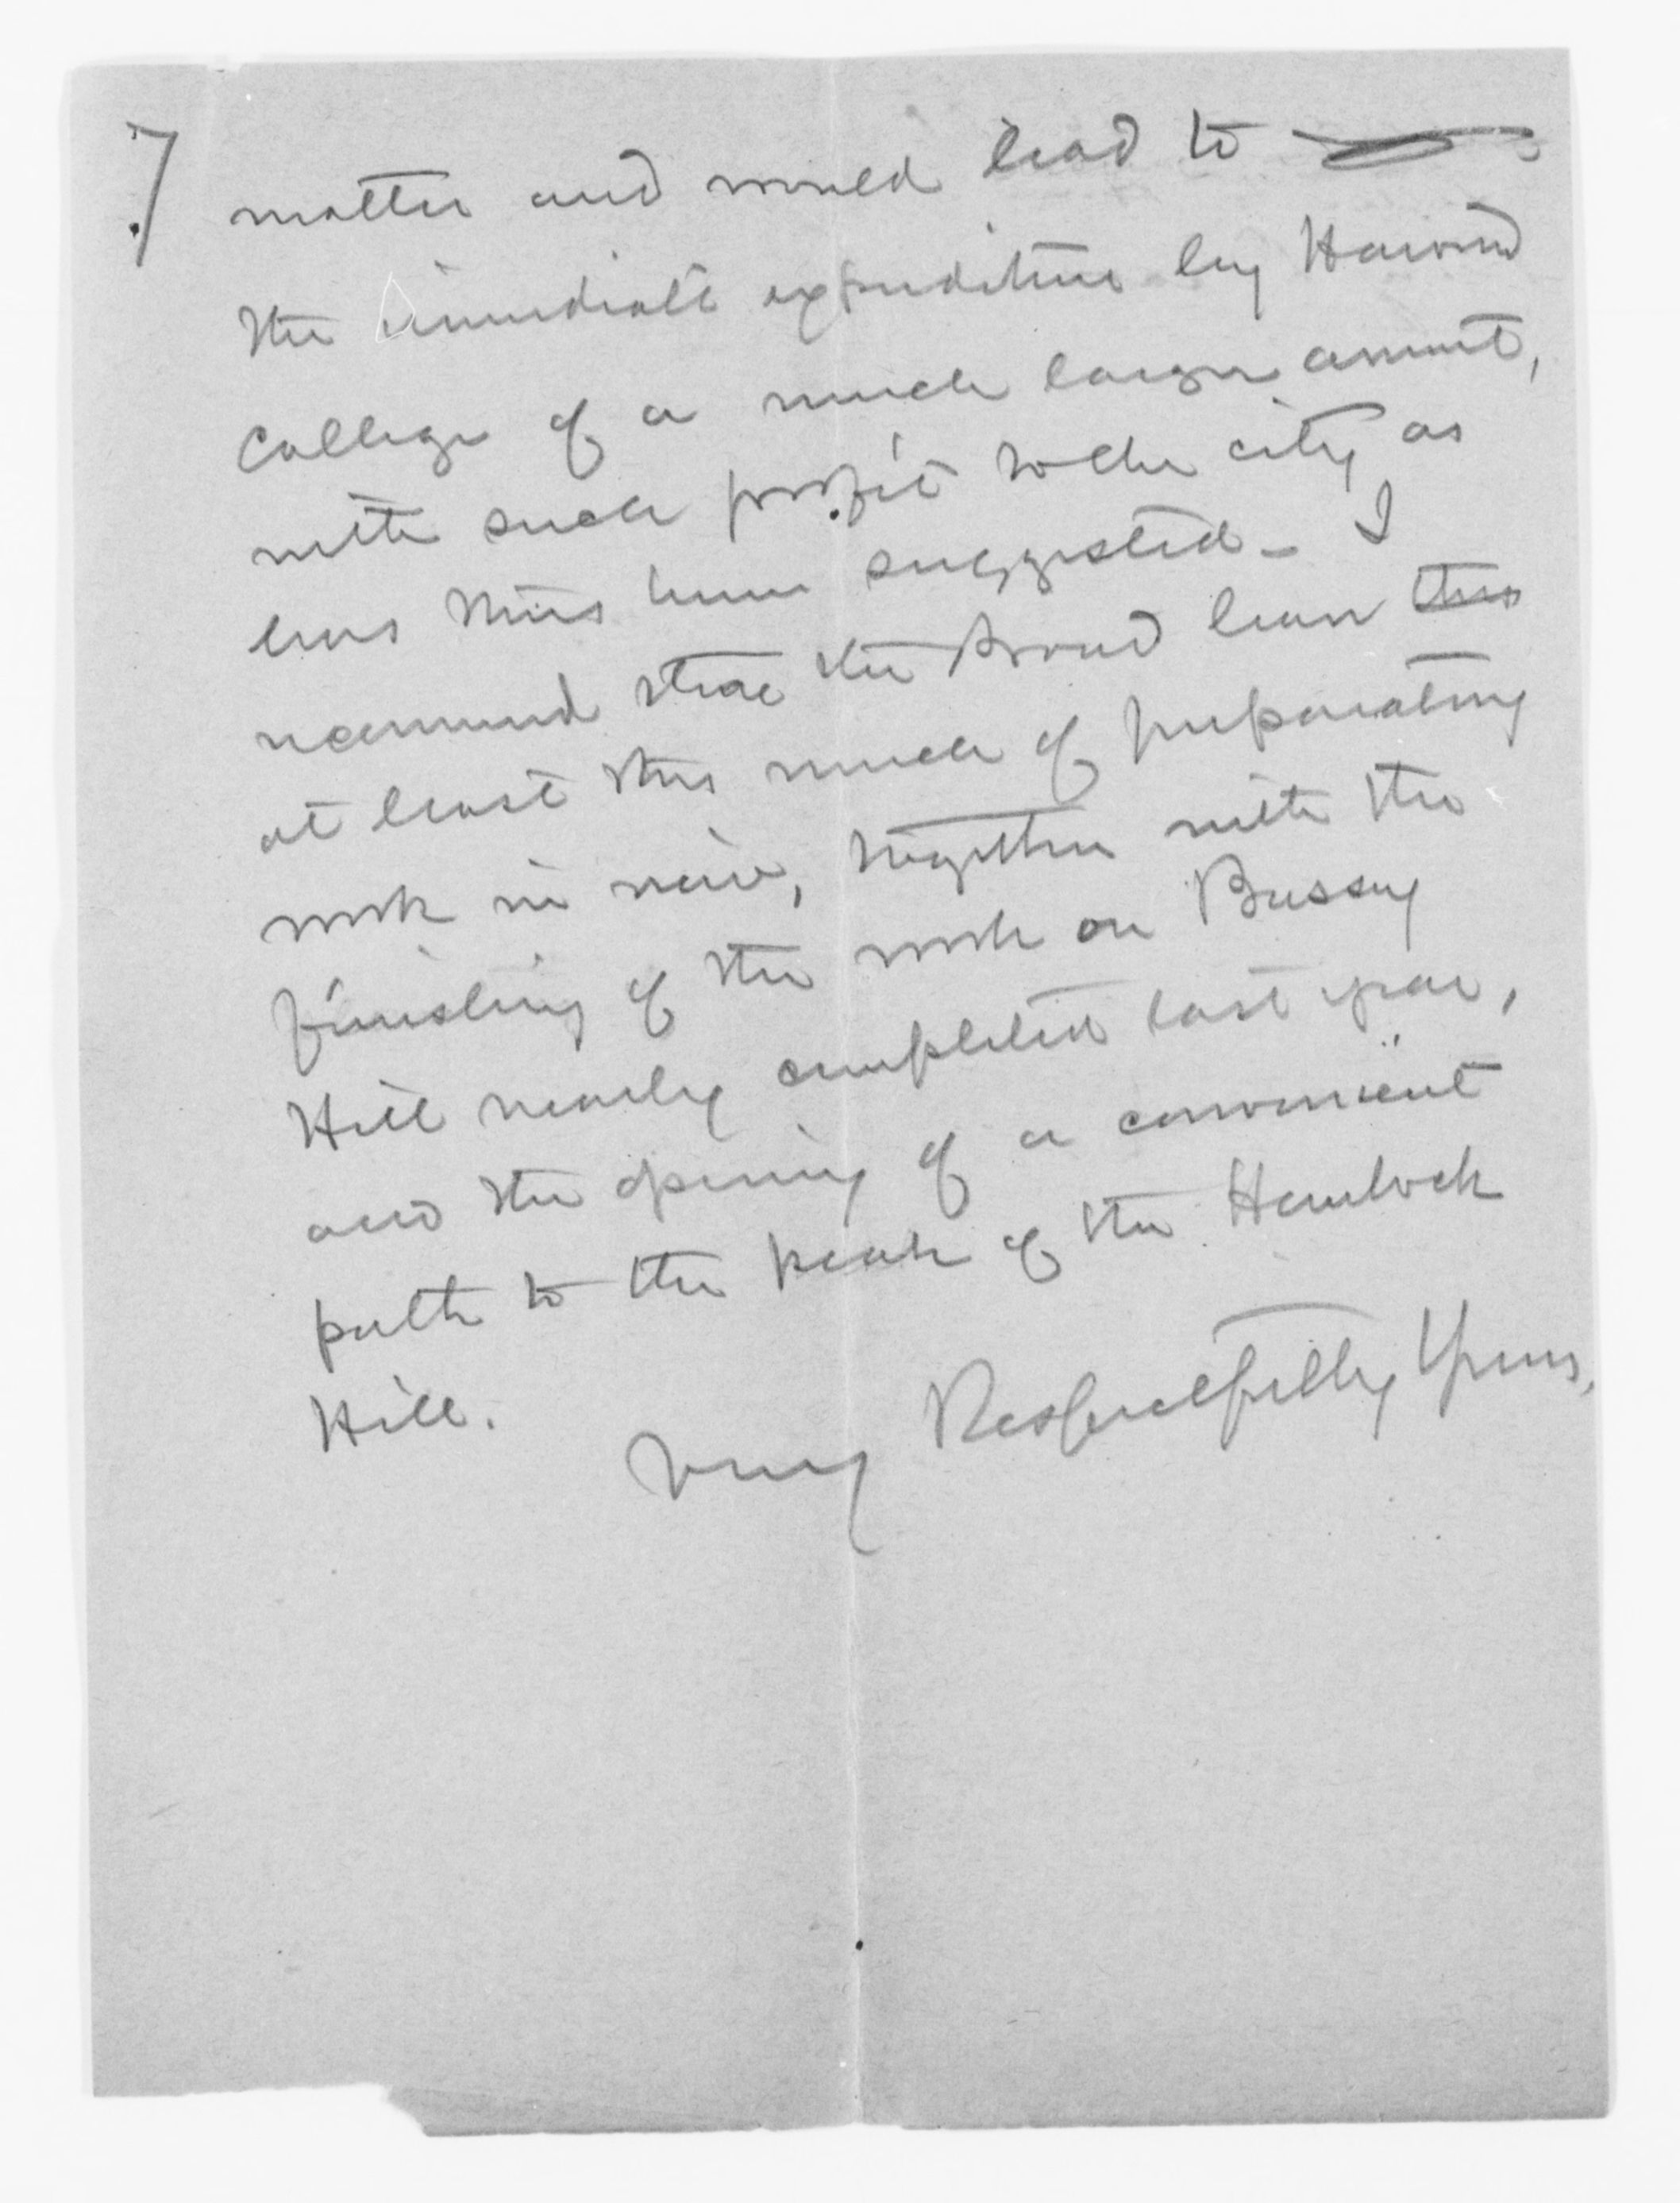 7
matter and would lead to
the immediate expenditure by Harvard
College of a much larger amount,
with such profit to the city as
has thus been suggested - I
recommend that the Board have this
at least this much of preparatory
work in view, together with the
finishing of the work on Bussey
Hill nearly completed last year,
and the opening of a convenient
path to the peak of the Hemlock
Hill.
Very Respectfully Yours,